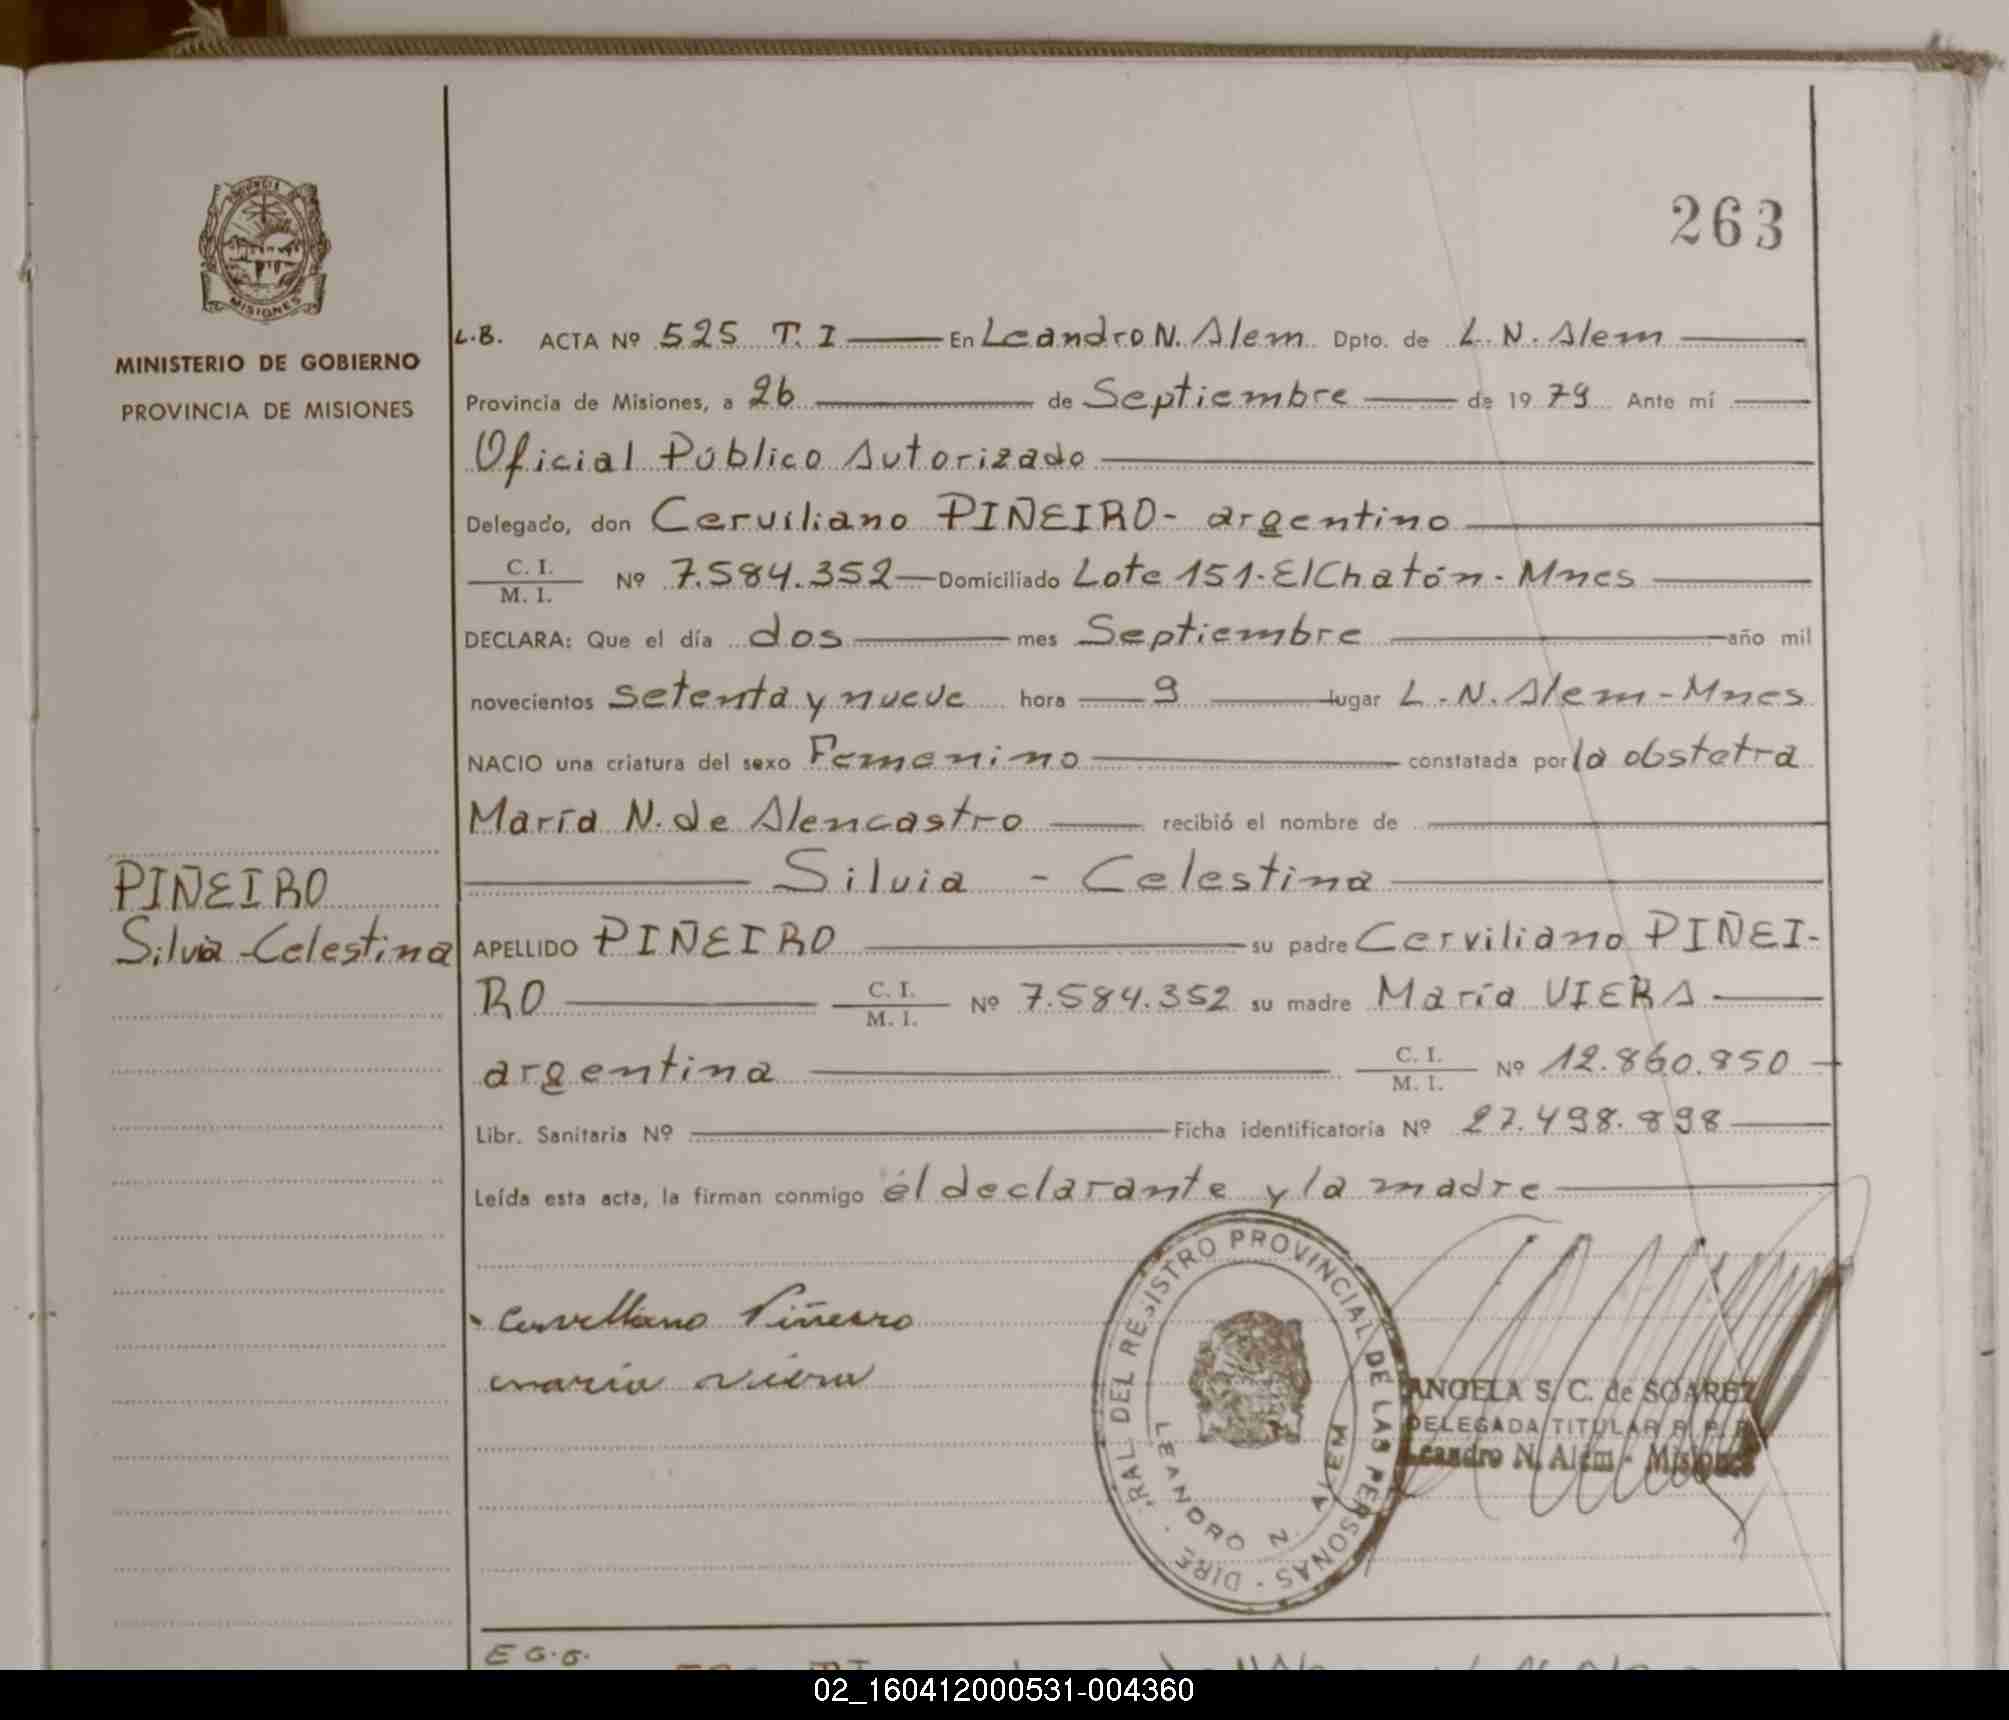 263
MISIONES
MINISTERIO DE GOBIERNO
PROVINCIA DE MISIONES
L.B. ACTA Nº 525 T. I En Leandro N. Alem Dpto. de L. N. Alem
Provincia de Misiones, a 26 de Septiembre de 1979 Ante mí
Oficial Público Autorizado
Delegado, don Cerviliano PIÑEIRO- argentino
C. I.
M. I. Nº 7.584.352 Domiciliado Lote 151-El Chatón - Mnes
DECLARA: Que el día dos mes Septiembre año mil
novecientos setenta y nueve hora 9 lugar L. N. Alem - Mnes
NACIO una criatura del sexo Femenino constatada por la obstetra
María N. de Alencastro recibió el nombre de
Silvia - Celestina
PIÑEIRO
Silvia - Celestina
APELLIDO PIÑEIRO su padre Cerviliano PIÑEI-
RO C. I. M. I. Nº 7.584.352 su madre María VIERA
argentina C. I. M. I. Nº 12.860.850
Libr. Sanitaria Nº Ficha identificatoria Nº 27.498.898
Leída esta acta, la firman conmigo él declarante y la madre
Cerviliano Piñeiro
maria viera
RAL DEL REGISTRO PROVINCIAL DE LAS PERSONAS · DIRE
LEANDRO N. ALEM
ANGELA S. C. de SOAREZ
DELEGADA TITULAR R. P. P.
Leandro N. Alem - Misiones
E G. G.
02_160412000531-004360